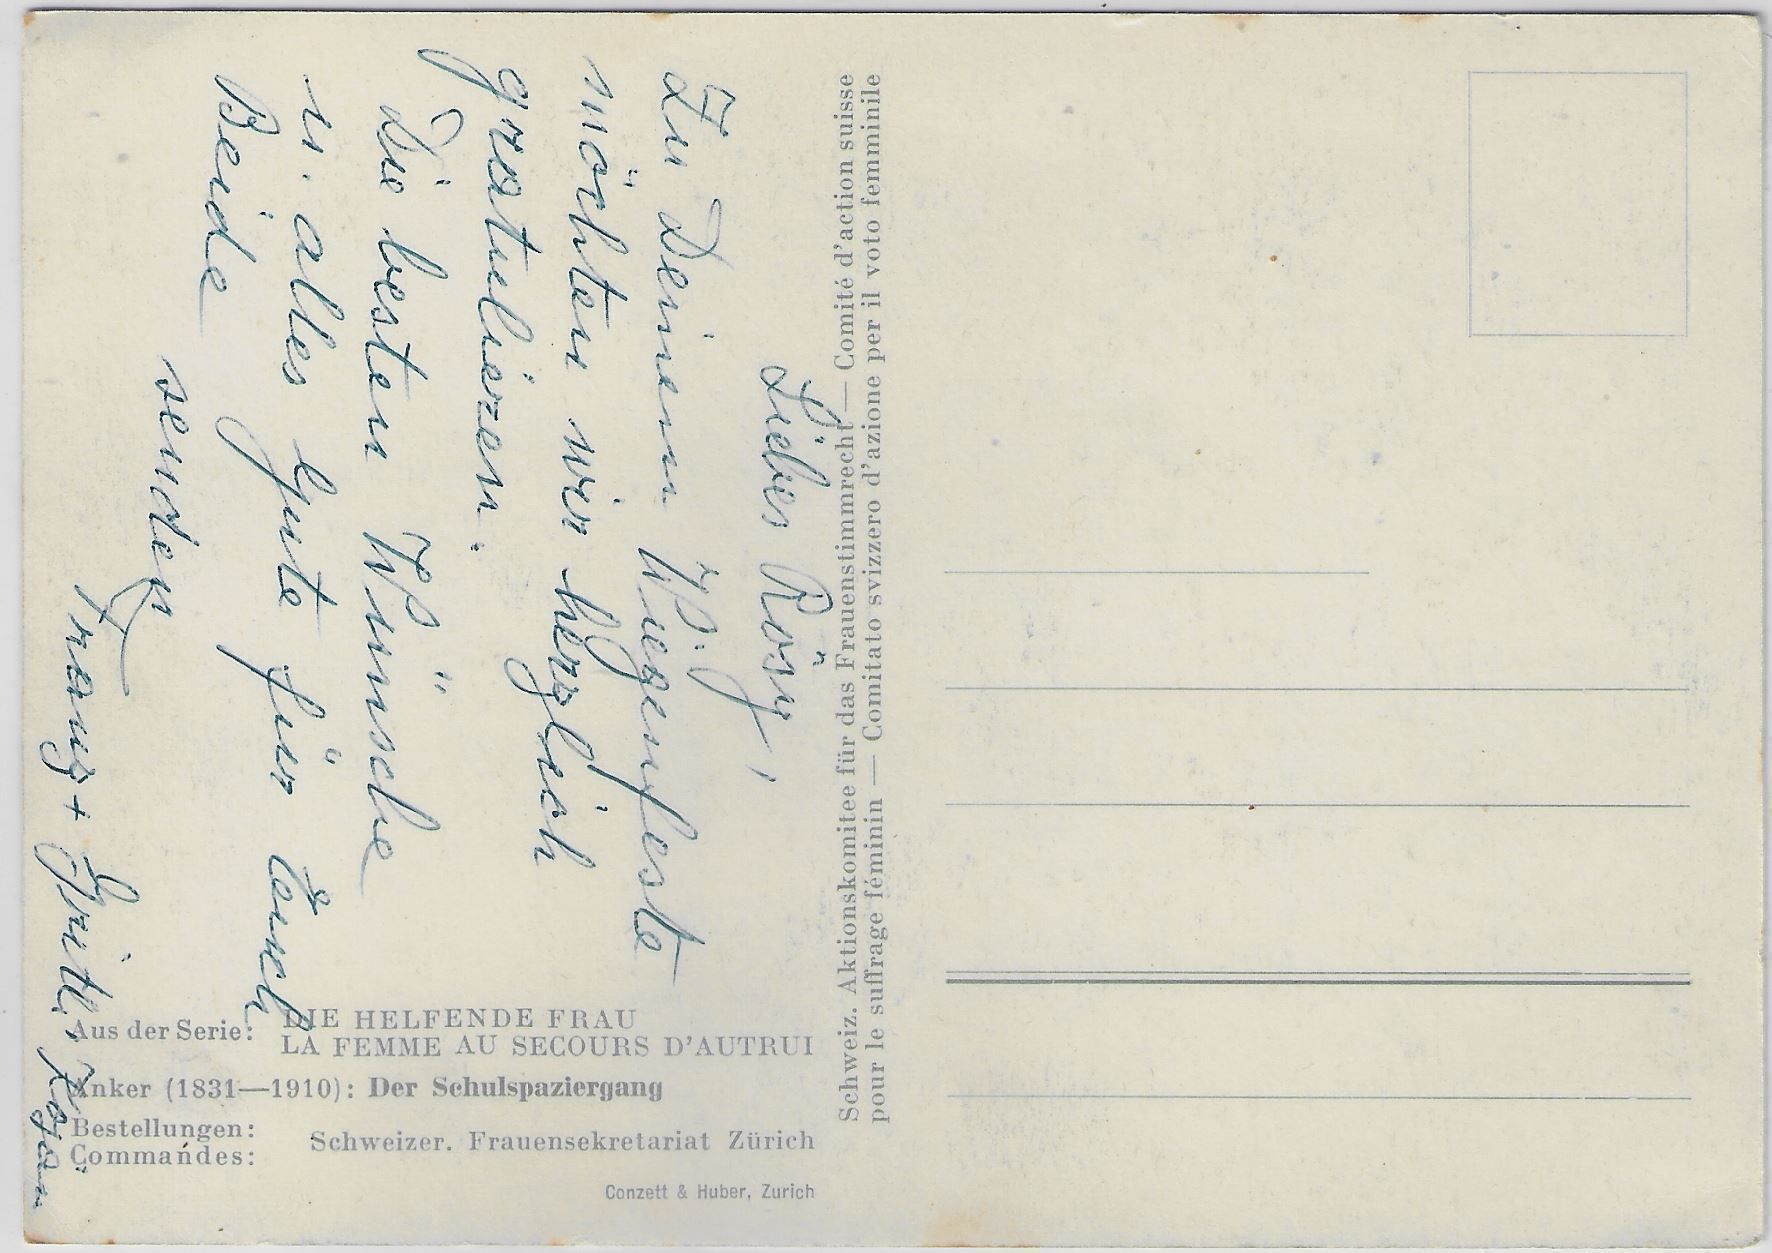 Liebes Rösy,
Zu Deinem Wiegenfeste
möchten wir herzlich
gratulieren.
Die besten Wünsche
u. alles Gute für Euch
Beide
senden
Schweiz. Aktionskomitee für das Frauenstimmrecht — Comité d'action suisse
pour le suffrage féminin — Comitato svizzero d'azione per il voto femminile
Aus der Serie: DIE HELFENDE FRAU
LA FEMME AU SECOURS D'AUTRUI
Anker (1831—1910): Der Schulspaziergang
Bestellungen:
Commandes:
Schweizer. Frauensekretariat Zürich
Conzett & Huber, Zurich